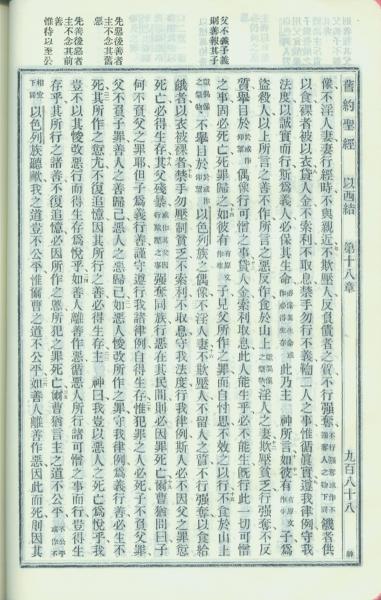 舊約聖經 以西結 第十八章 九百八十八
像不淫人妻妻行經時不與親近不欺壓人反負債者之質不行強奪饑者供
以食裸者被以衣貸人金不索利不取息禁手勿行不義二人之事惟循眞實遵我律例守我
法度以誠實而行斯爲義人必保其生命此乃主 神所言如彼有子爲
盜殺人以上所言之善不作所言之惡反作食於山上淫人之妻欺壓貧乏行強奪不反
質舉目於偶像行可憎之事貸人金索利取息此人能生乎必不能生旣行此一切可憎
之事固必死亡罪歸之如彼有子見父所作之罪而自忖思不效之以行不食於山上
不舉目於以色列族之偶像不淫人妻不欺壓人不留人之質不行強奪以食給
饑者以衣被裸者禁手勿壓制貧乏不索利不取息守我法度行我律例斯人必不因父之罪愆
死亡必得生存其父殘暴強奪同族行惡在其民間則必因罪死亡爾曹猶問曰子
何不負父之罪耶但子爲義行善謹守遵行我諸律例自得生存惟犯罪之人必死子不負父罪
父不負子罪善人之善歸己惡人之惡歸己如惡人悛改所作之罪守我律例爲義行善必生不
死其所作之愆尤不復追憶因其所行之善必得生存主 神曰我豈以惡人之死亡爲悅乎我
豈不以其悛改惡行而得生存爲悅乎如善人離善作惡循惡人所行諸可憎之事而行豈得生
存乎其所行之諸善不復追憶必因所作之惡所犯之罪死亡爾曹猶言主之道不公平
以色列族聽歟我之道豈不公平惟爾曹之道不公平如善人離善作惡因此而死則因其
父不義子義
則善報其子
先惡後善者
主不念其舊
惡
先善後惡者
主不念其前
善
惟待以至公